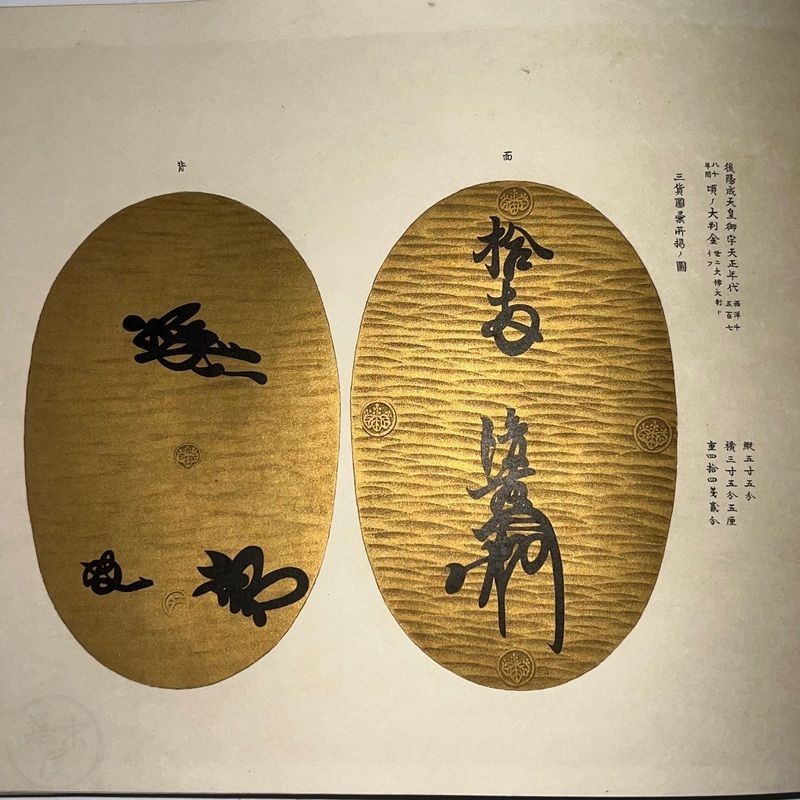 後陽成天皇御宇天正年代西洋千五百七
八十年間頃ノ大判金世ニ大佛大判トイフ
三貨圖彙所揭ノ圖
五寸五分
横三寸五分五厘
重四拾四匁貳分
面
拾両
後藤
背